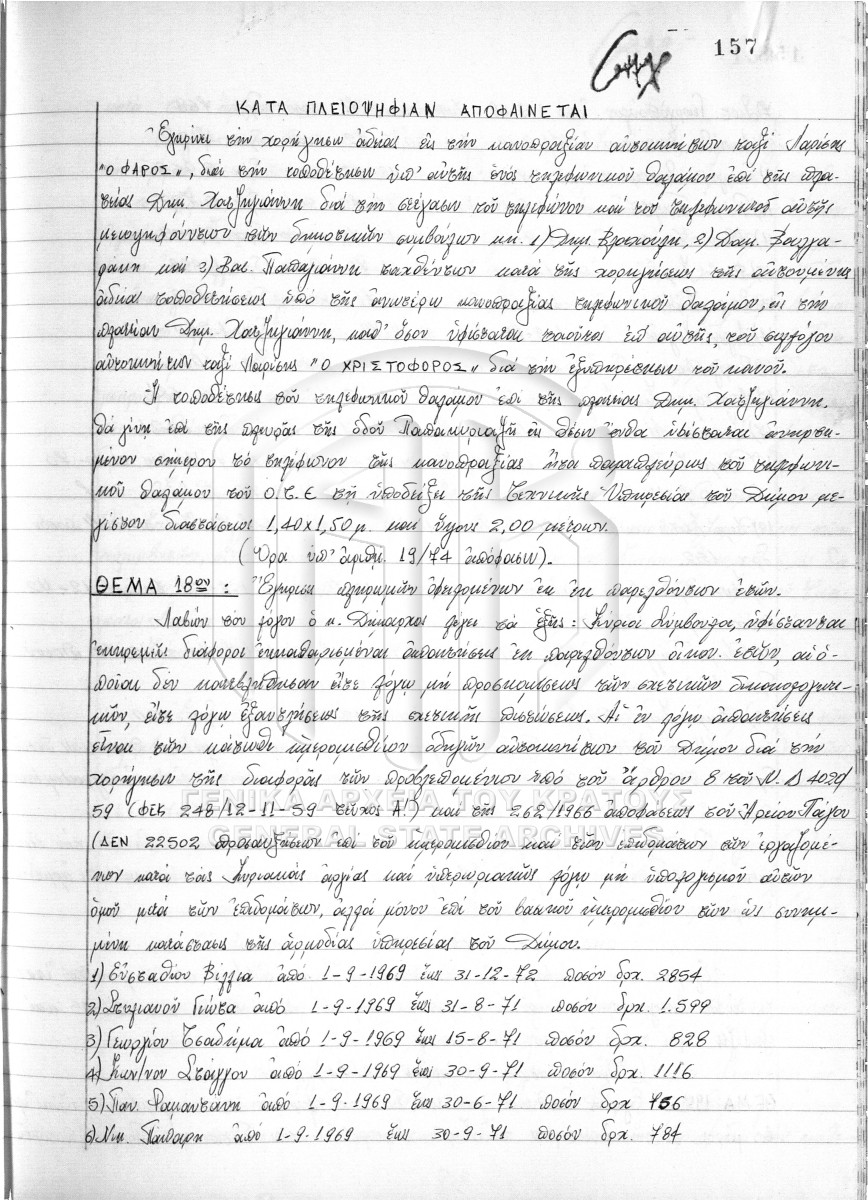 157
ΚΑΤΑ ΠΛΕΙΟΨΗΦΙΑΝ ΑΠΟΦΑΙΝΕΤΑΙ
Ἐγκρίνει τὴν χορήγησιν ἀδείας εἰς τὴν κοινοπραξίαν αὐτοκινήτων ταξί Λαρίσης
"Ο ΦΑΡΟΣ", διὰ τὴν τοποθέτησιν ὑπ' αὐτῆς ἑνός τηλεφωνικοῦ θαλάμου ἐπὶ τῆς πλα-
τείας Δημ. Χατζηγιάννη διὰ τὴν στέγασιν τοῦ τηλεφώνου καὶ τοῦ τηλεφωνητοῦ αὐτῆς
μειοψηφούντων τῶν δημοτικῶν συμβούλων κ.κ. 1) Δημ. 2) Δημ.
καὶ 3) Βασ. Παπαγιάννη ταχθέντων κατά τῆς χορηγήσεως τῆς αἰτουμένης
ἀδείας τοποθετήσεως ὑπὸ τῆς ἀνωτέρω κοινοπραξίας τηλεφωνικοῦ θαλάμου, εἰς τὴν
πλατείαν Δημ. Χατζηγιάννη, καθ' ὅσον ὑφίσταται τοιοῦτος ἐπ' αὐτῆς, τοῦ συλλόγου
αὐτοκινήτων ταξί Λαρίσης "Ο ΧΡΙΣΤΟΦΟΡΟΣ" διὰ τὴν ἐξυπηρέτησιν τοῦ κοινοῦ.
Ἡ τοποθέτησις τοῦ τηλεφωνικοῦ θαλάμου ἐπὶ τῆς πλατείας Δημ. Χατζηγιάννη.
θὰ γίνῃ ἐπὶ τῆς πλευρᾶς τῆς ὁδοῦ Παπακυριαζῆ εἰς θέσιν ἔνθα ὑφίσταται ἀνηρτη-
μένον σήμερον τὸ τηλέφωνον τῆς κοινοπραξίας ἤτοι παραπλεύρως τοῦ τηλεφωνι-
κοῦ θαλάμου τοῦ Ο.Τ.Ε τῇ ὑποδείξει τῆς Τεχνικῆς Ὑπηρεσίας τοῦ Δήμου με-
γίστου διαστάσεως 1,40x1,50 μ. καὶ ὕψους 2,00 μέτρων.
(Ὅρα ὑπ' ἀριθμ. 19/74 ἀπόφασιν).
ΘΕΜΑ 18ον : Ἔγκρισις πληρωμῶν ὀφειλομένων ἐκ ἐκ παρελθόντων ἐτῶν.
Λαβών τόν λόγον ὁ κ. Δήμαρχος λέγει τὰ ἑξῆς: Κύριοι Σύμβουλοι, ὑφίστανται
ἐκκρεμεῖς διάφοροι ἐκκαθαρισμέναι ἀπαιτήσεις ἐκ παρελθόντων οἰκον. ἐτῶν, αἱ ὁ-
ποῖαι δέν κατεβλήθησαν εἴτε λόγῳ μή προσκομίσεως τῶν σχετικῶν δικαιολογητι-
κῶν, εἴτε λόγῳ ἐξαντλήσεως τῆς σχετικῆς πιστώσεως. Αἱ ἐν λόγῳ ἀπαιτήσεις
εἶναι τῶν κάτωθι ἡμερομισθίων ὁδηγῶν αὐτοκινήτων τοῦ Δήμου διὰ τὴν
χορήγησιν τῆς διαφορᾶς τῶν προβλεπομένων ὑπὸ τοῦ ἄρθρου 8 τοῦ Ν.Δ 4020/
59 (ΦΕΚ 248/12-11-59 τεῦχος Α!) καὶ τῆς 262/1966 ἀποφάσεως τοῦ Ἀρείου Πάγου
(ΔΕΝ 22502 προσαυξήσεων ἐπὶ τοῦ ἡμερομισθίου καὶ τῶν ἐπιδομάτων τῶν ἐργαζομέ-
νων κατά τάς Κυριακάς ἀργίας καὶ ὑπερωριακῶς λόγῳ μή ὑπολογισμοῦ αὐτῶν
ὁμοῦ μετά τῶν ἐπιδομάτων, ἀλλά μόνον ἐπὶ τοῦ βασικοῦ ἡμερομισθίου τῶν ὡς συνημ-
μένη κατάστασις τῆς ἁρμοδίας ὑπηρεσίας τοῦ Δήμου.
1) Εὐσταθίου Βίλλια ἀπό 1-9-1969 ἕως 31-12-72 ποσόν δρχ. 2854
2) Στυλιανοῦ Γιώτα ἀπό 1-9-1969 ἕως 31-8-71 ποσόν δρχ. 1.599
3) Γεωργίου Τσαδήμα ἀπό 1-9-1969 ἕως 15-8-71 ποσόν δρχ. 828
4) Κων/νου Στάγγου ἀπό 1-9-1969 ἕως 30-9-71 ποσόν δρχ. 1116
5) Παν. ἀπό 1-9-1969 ἕως 30-6-71 ποσόν δρχ 756
6) Νικ. ἀπό 1-9-1969 ἕως 30-9-71 ποσόν δρχ. 784
ΓΕΝΙΚΑ ΑΡΧΕΙΑ ΤΟΥ ΚΡΑΤΟΥΣ
GENERAL STATE ARCHIVES